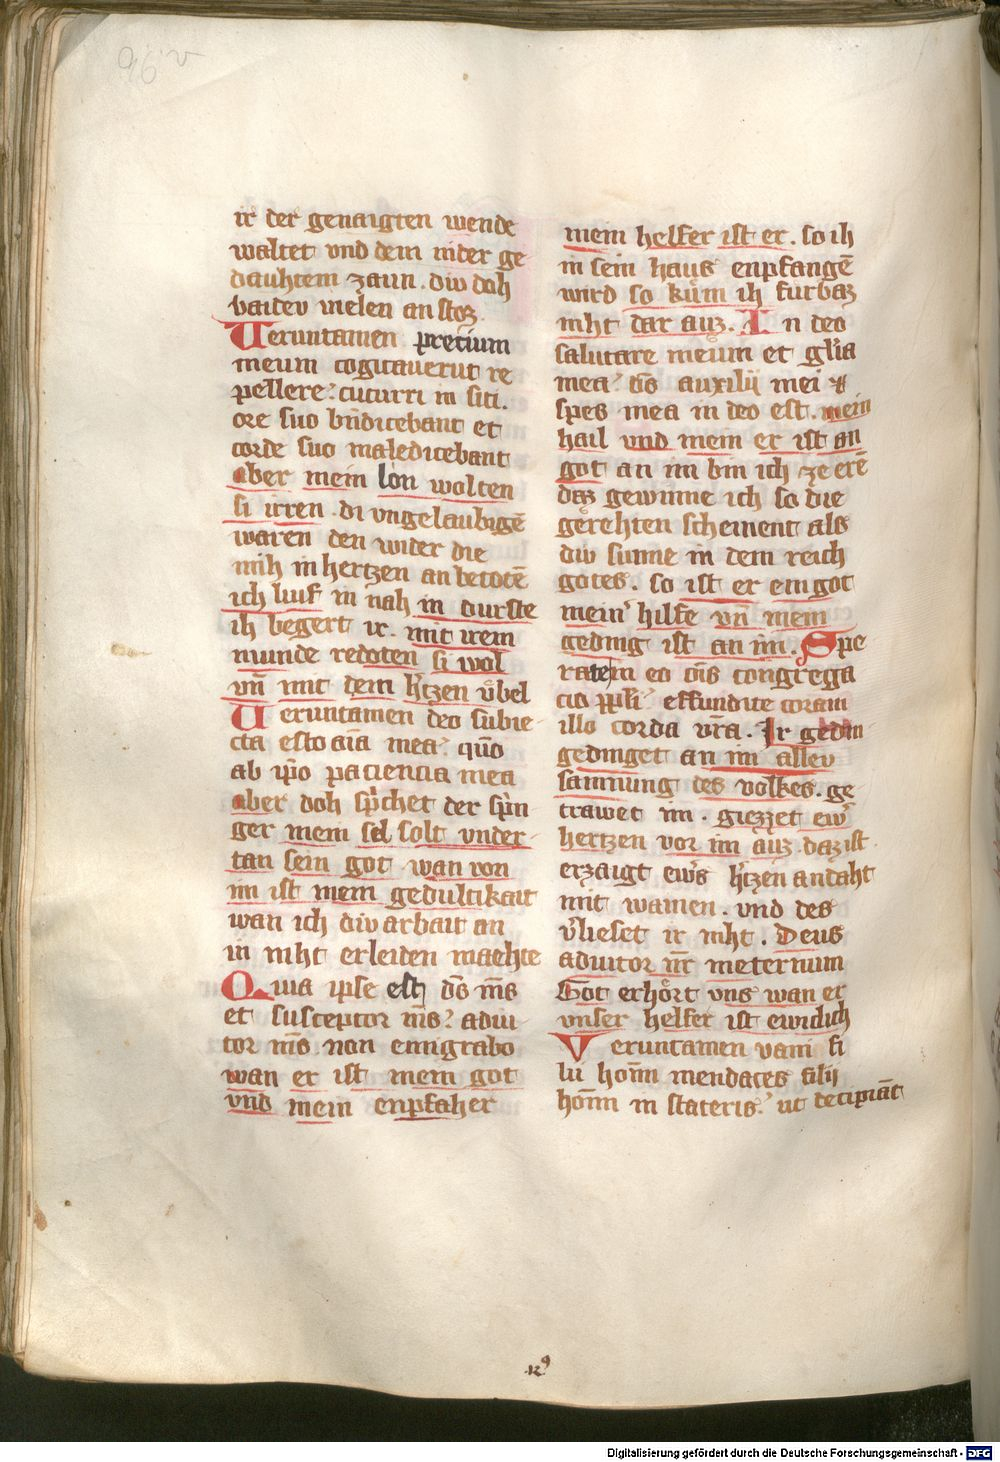 96 v
ir der genaigten wende
waltet vnd dem nider ge
dauhtem zaun. div doh
baidev vielen an stoz.
Veruntamen precium
meum cogitauerut re
pellere: cucurri in siti.
ore suo bn̄dicebant et
corde suo maledicebant
aber mein lon wolten
si irren. di vngelaubigē
waren den wider die
mih in hertzen an betotē
ich luif in nah in durste
ih begert ir. mit irem
munde redoten si wol
vn̄ mit dem h'tzen vͤbel
Veruntamen deo subie
cta esto aīa mea: quō
ab ip̄o paciencia mea
aber doh sp̄chet der sp̄in
ger mein sel solt vnder
tan sein got wan von
im ist mein gedultikait
wan ich div arbait an
in niht erleiden maehte
Quia ipse est ds̄ ms̄
et susceptor ms̄: adiu
tor ms̄. non emigrabo
wan er ist mein got
vnd mein enpfaher
mein helfer ist er. so ih
in sein haus enpfangē
wird so kuͤm ih furbaz
niht dar auz. In deo
salutare meūm et gl'ia
mea: ds̄ auxilij mei et
spes mea in deo est. mein
hail vnd mein er ist an
got an im bin ich ze erē
daz gewinne ich so die
gerehten scheinent als
div sunne in dem reich
gotes. so ist er ein got
mein' hilfe vn̄ mein
geding ist an im. Spe
rate in eo oīs congrega
cio pp̄li: effundite coram
illo corda vr̄a. Ir gedin
gedinget an im allev
samnung des volkes. ge
trawet im. giezzet ew'
hertzen vor im auz. daz ist
erzaigt ew's h'tzen andaht
mit wainen. vnd des
v'lieset ir niht. Deus
adiutor nr̄ in eternum
Got erhoͤrt vns wan er
vnser helfer ist ewiclich
Veruntamen vani fi
lii hom̄ mendaces filij
hom̄ in stateris: ut decipiāt
12⁹
Digitalisierung gefördert durch die Deutsche Forschungsgemeinschaft - DFG